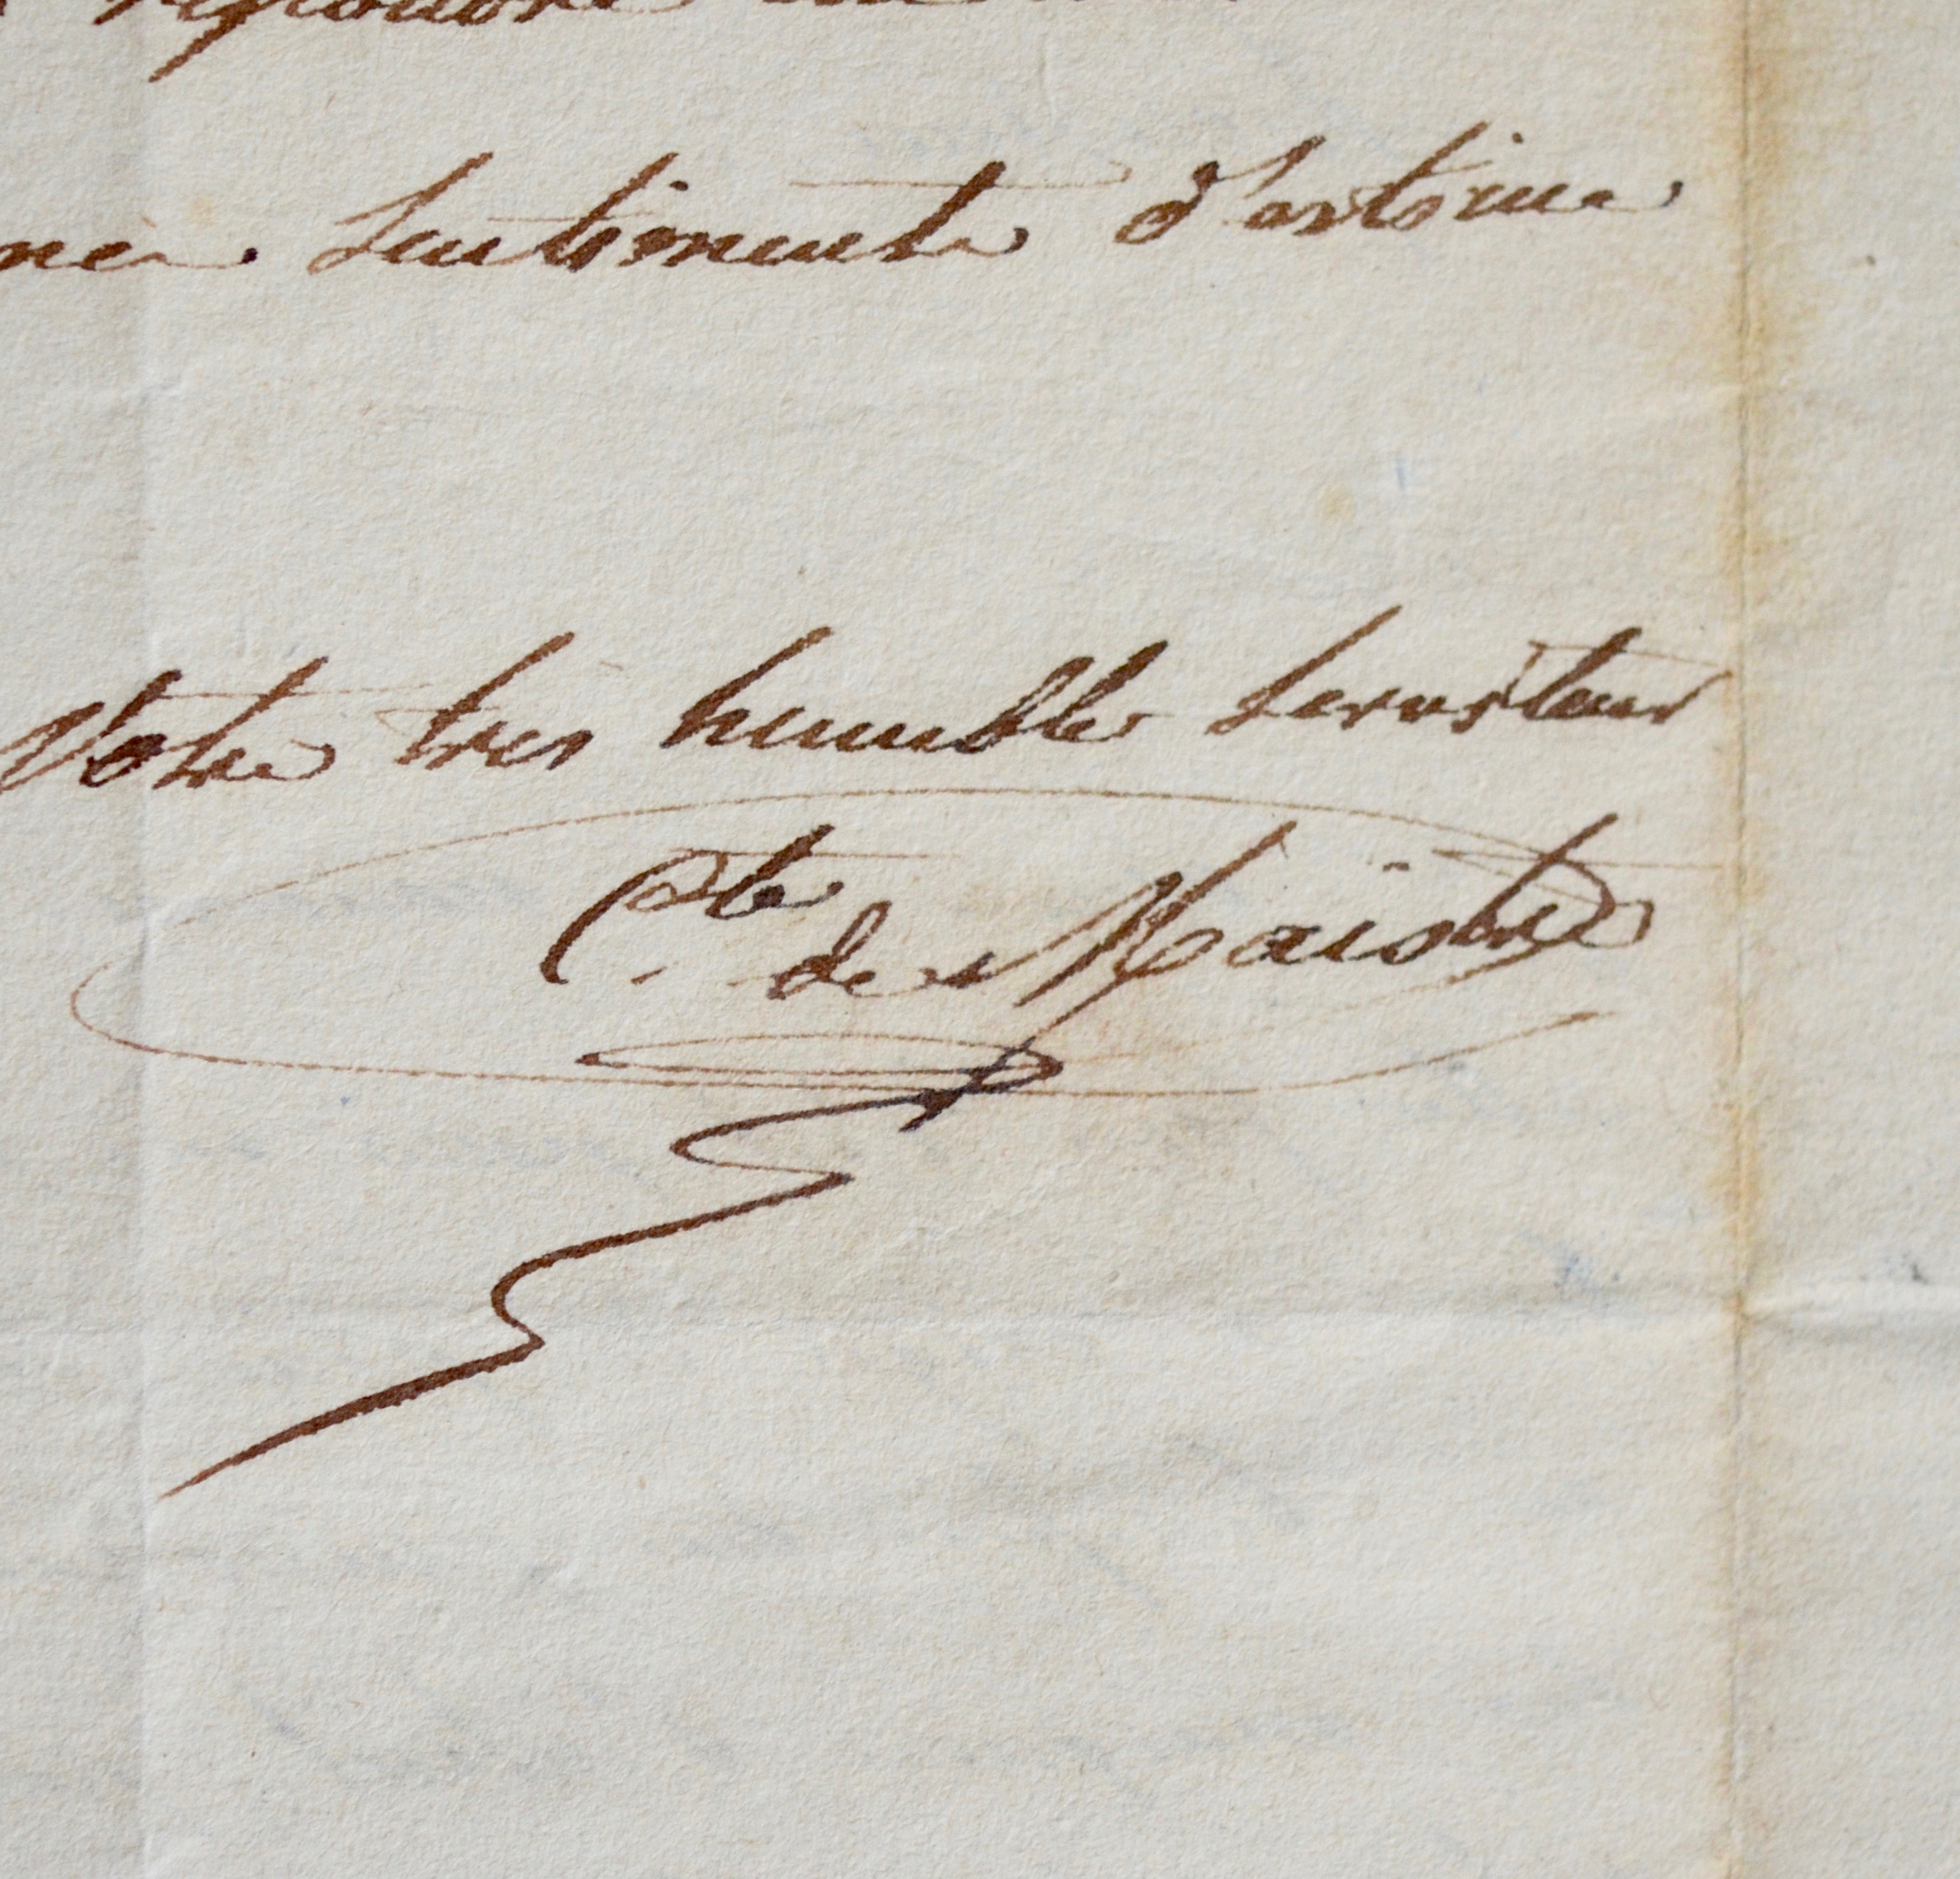 sentiments d'estime
Votre tres humble serviteur
Cte de Maistre